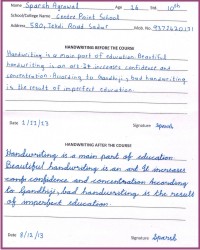 Name Sparsh Agrawal Age 16 Std. 10th
School/College Name Center Point School
Address 580, Tekdi Road Sadar Mob. No. 9372620131
HANDWRITING BEFORE THE COURSE
Handwriting is a main part of education. Beautiful
handwriting is an art. It increases confidence and
concentration. According to Gandhiji, bad handwriting
is the result of imperfect education.
Date 1/11/13 Signature Sparsh
HANDWRITING AFTER THE COURSE
Handwriting is a main part of education.
Beautiful handwriting is an art. It increases
confidence and concentration. According
to Gandhiji, bad handwriting is the result
of imperfect education.
Date 8/12/13 Signature Sparsh